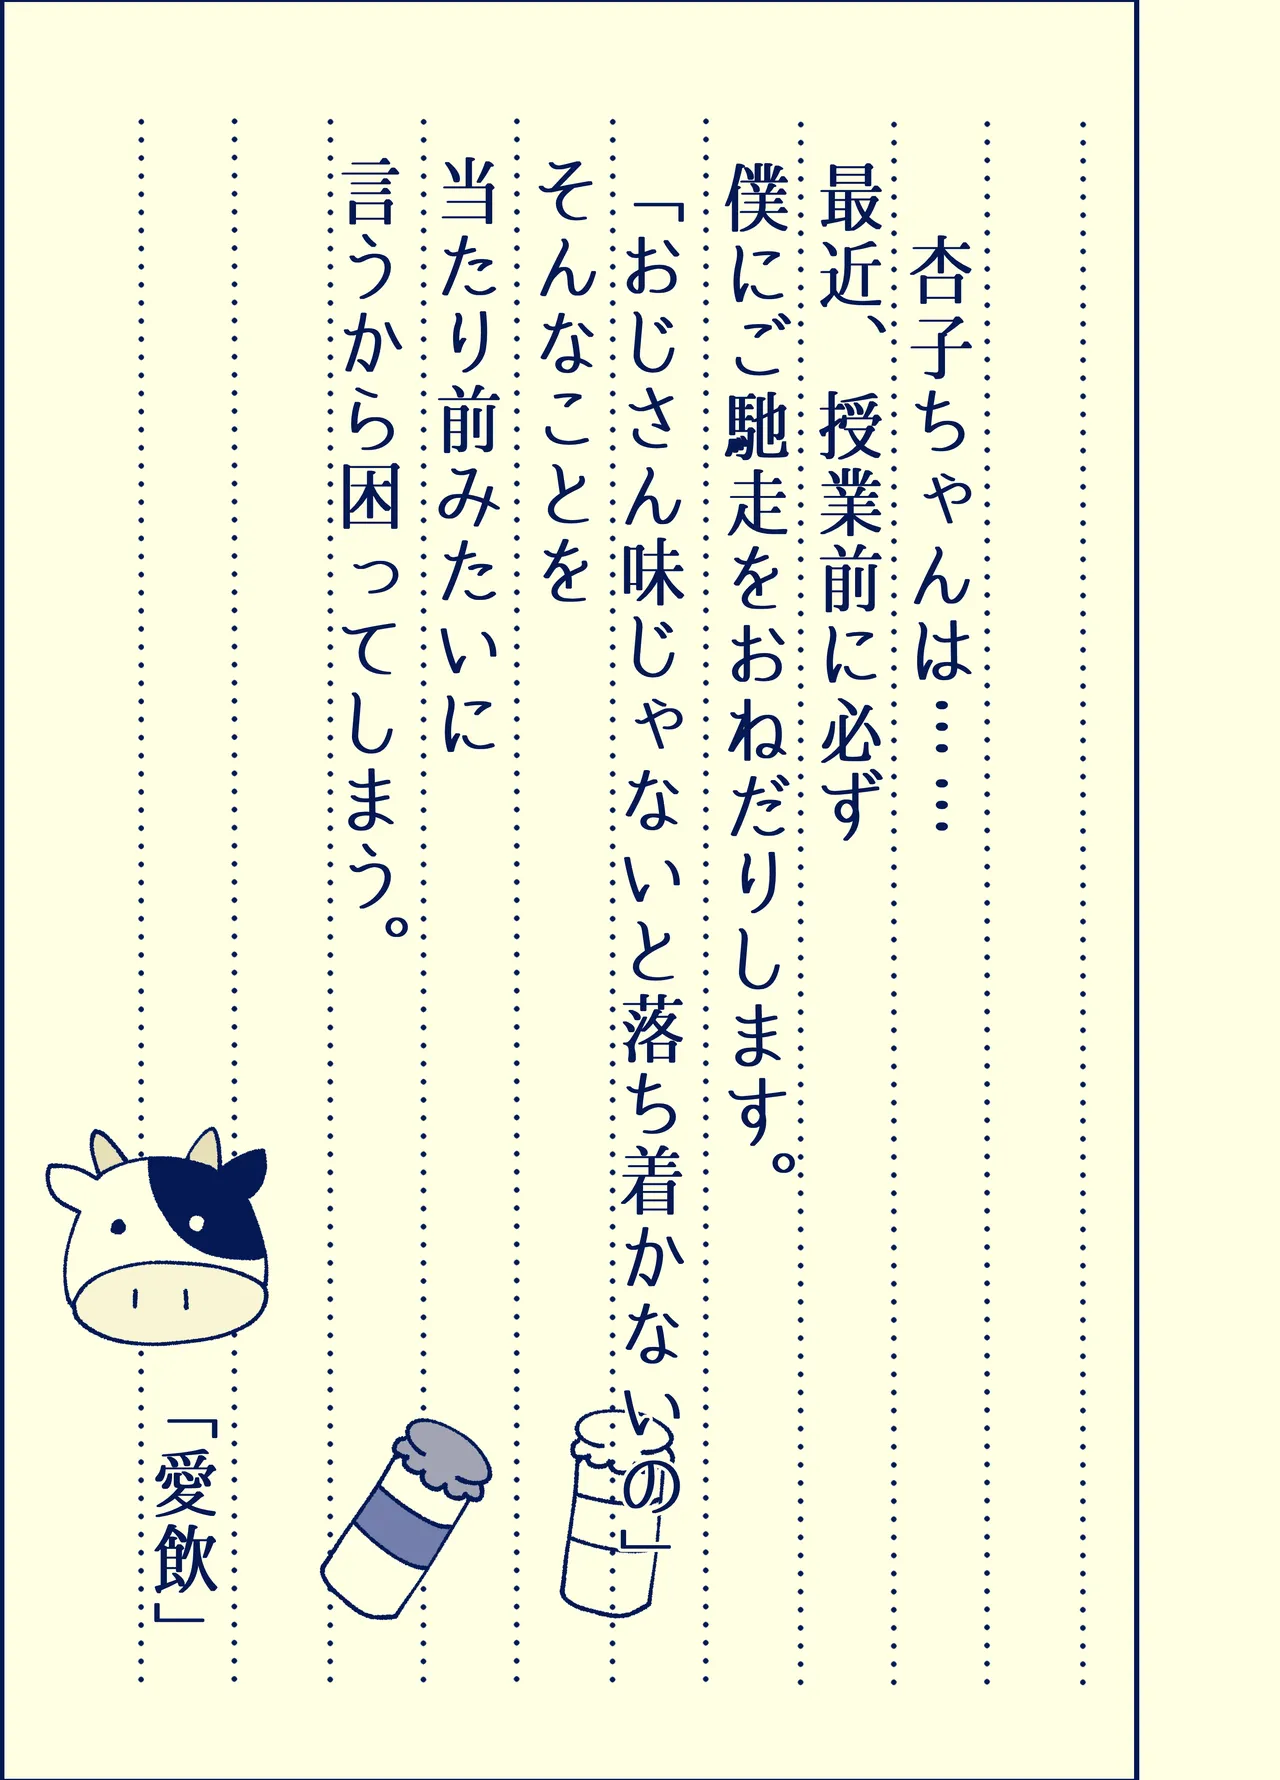 杏子ちゃんは……
最近、授業前に必ず
僕にご馳走をおねだりします。
「おじさん味じゃないと落ち着かないの」
そんなことを
当たり前みたいに
言うから困ってしまう。
「愛飲」